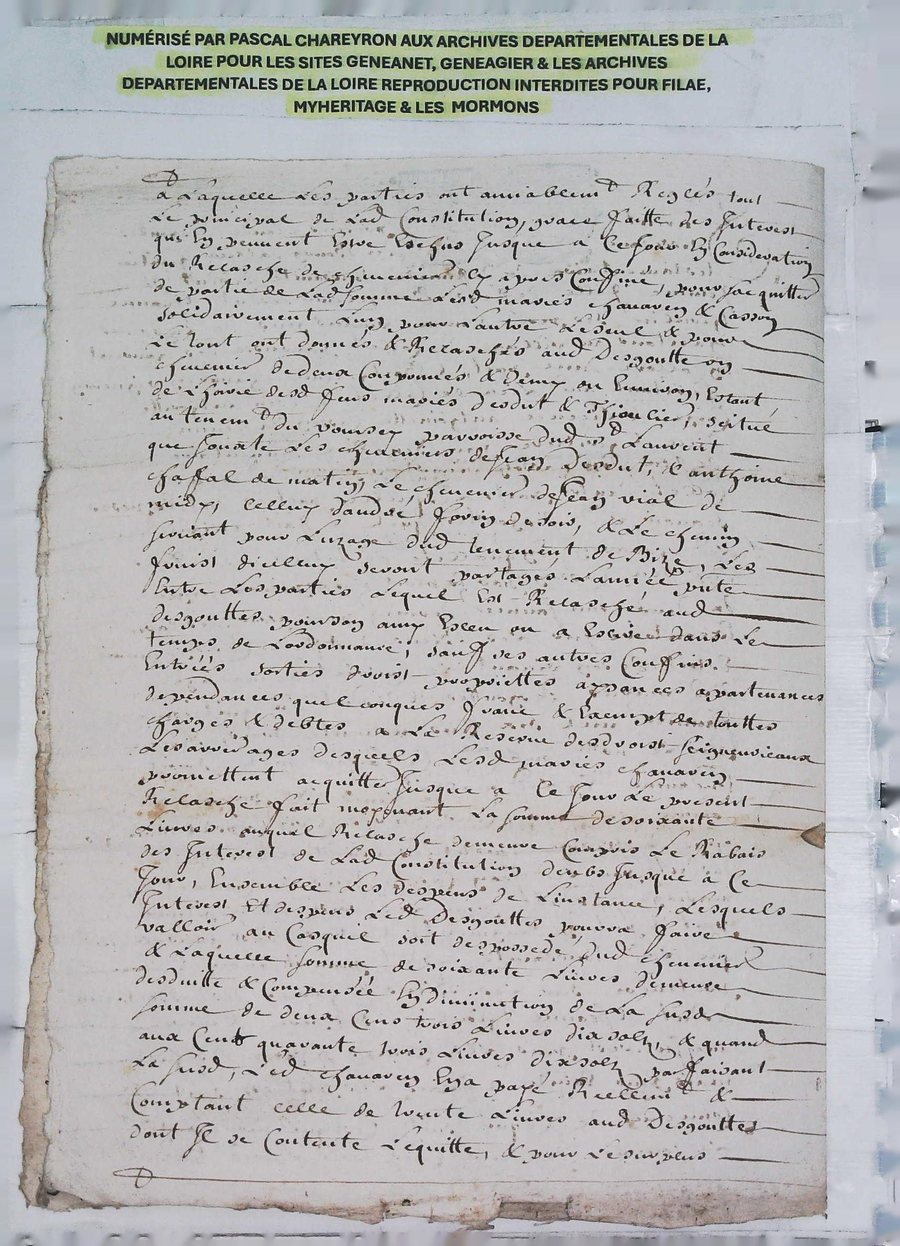 NUMÉRISÉ PAR PASCAL CHAREYRON AUX ARCHIVES DEPARTEMENTALES DE LA
LOIRE POUR LES SITES GENEANET, GENEAGIER & LES ARCHIVES
DEPARTEMENTALES DE LA LOIRE REPRODUCTION INTERDITES POUR FILAE,
MYHERITAGE & LES MORMONS
A Laquelle Les parties ont amiablemt Reglés tout
Le principal de Lad Constitution, grace faitte des Interest
qui En peuvent Estre Escheus Jusque a Ce Jour En Consideration
du Relasche de chenevier Cy apres Confiné, pour sacquitter
de partie de Lad somme Lesd mariés chavaren & Casson
solidairement Lun pour Lautre Le seul & pour
Le tout ont donnés & Relaschés aud Desgouttes un
chenevier de deux Couponnées & demy ou Environ, Estant
de L'hoirie desd feus mariés desdut & Thioulier, scitué
au tenemt du parroisse dud st Laurent
que Jouxte Les cheneviers de Jean Desdut, & anthoine
chaffal de matin, Le chenevier de Jean vial de
midy, Celluy dandré Jovin de soir, & Le chemin
servant pour Luzage dud tenement de Bize, Les
fruist dicelluy seront partagés Lannée pnte
Entre Les parties Lequel Est Relasché aud
desgouttes pour son amy Esleu ou a Eslire dans Le
temps de Lordonnance, sauf ses autres Confins
Entrées sorties droist proprietes aysances apartenances
dependances quelconques franc & Exempt de touttes
charges & debtes a La Reserve des droist seigneuriaux
Les arrerages desquels Lesd mariés chavaren
promettent acquitter Jusque a Ce Jour Le present
Relasche fait moyenant La somme de soixante
Livres auquel Relasche demeure Compris Le Rabais
des Interest de Lad Constitution deubs Jusque a Ce
Jour, Ensemble Les despens de Linstance, Lesquels
Interest Et despens Led Desgouttes pourra faire
valloir au Cas quil soit despossedé dud chenevier
& Laquelle somme de soixante Livres demeure
desduitte & Compensée En diminution de La susd
somme de deux Cens trois Livres dix solz, & quand
aux Cent quarante trois Livres dix solz parfaisant
La susd, Led chavaren En a payé Reellemt &
Comptant celle de trente Livres aud Desgouttes
dont Il se Contente L'equitte, & pour Le surplus